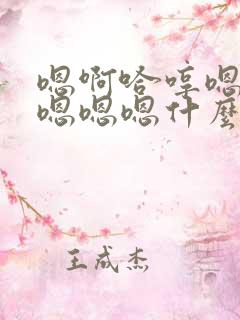 嗯啊哈哼嗯
嗯嗯嗯什麽
王成杰